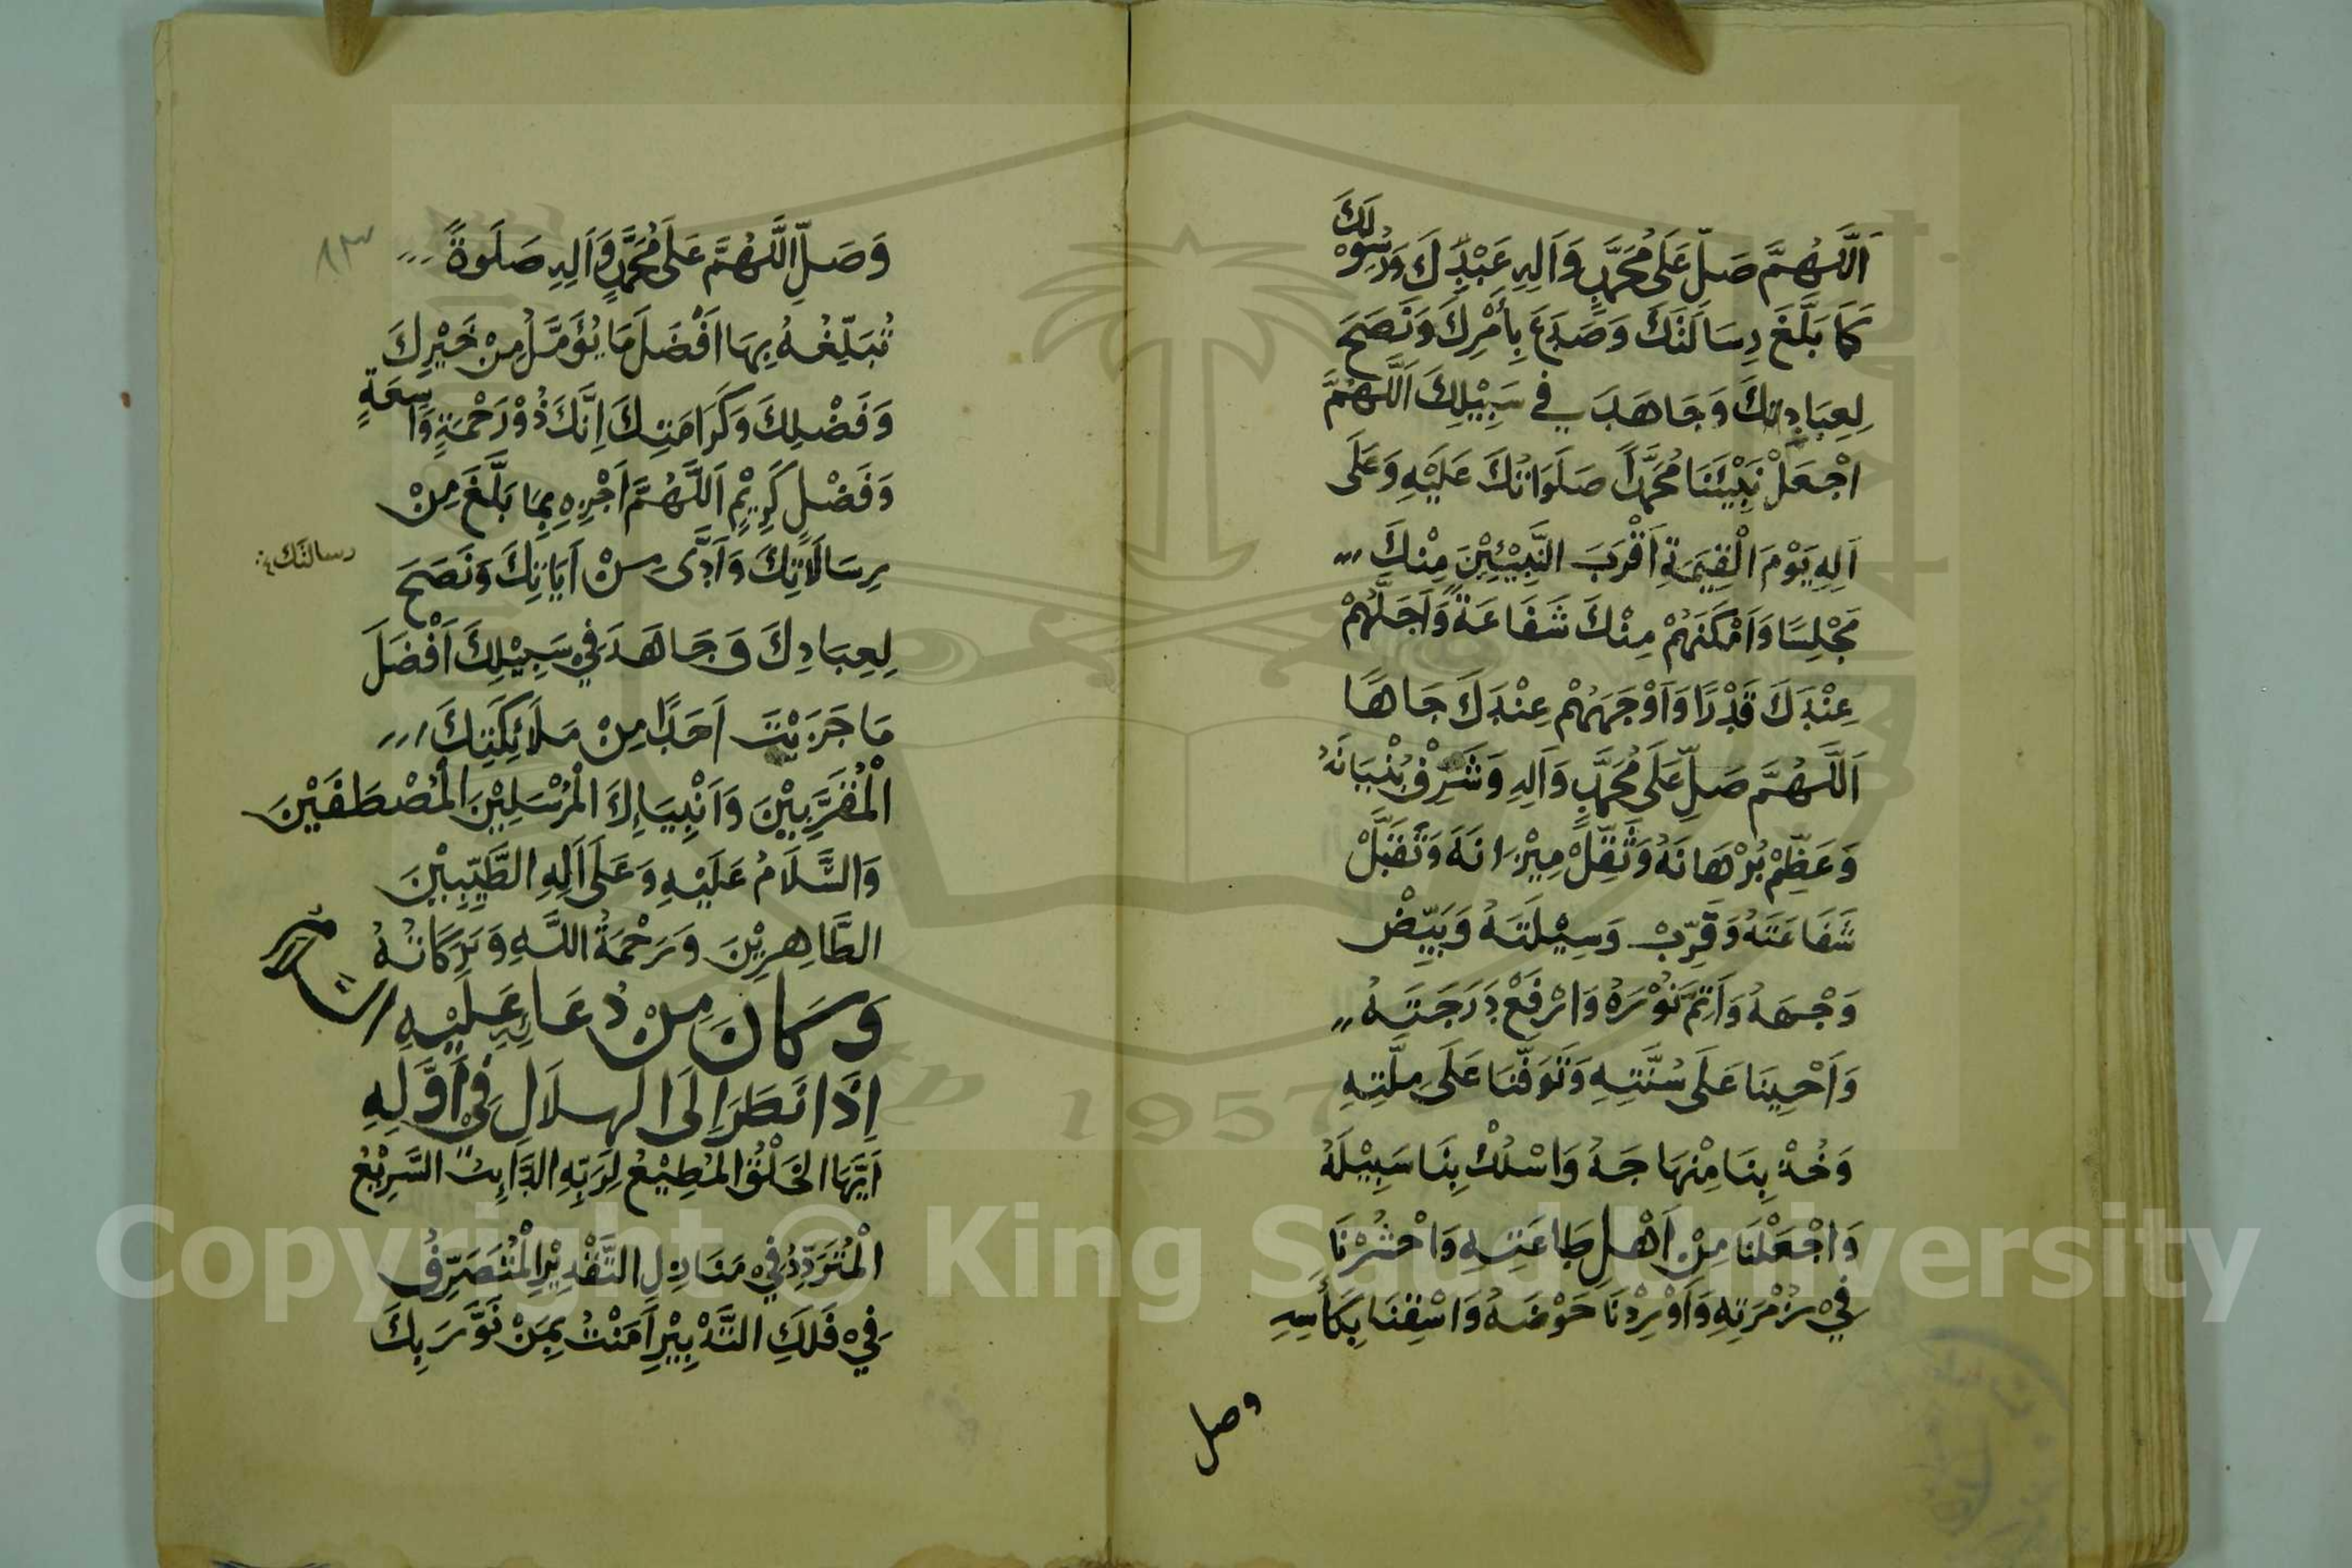 اَللّٰهُمَّ صَلِّ عَلَى مُحَمَّدٍ وَاٰلِهِ عَبْدِكَ وَرَسُوْلِكَ
كَمَا بَلَّغَ رِسَالَتَكَ وَصَدَعَ بِأَمْرِكَ وَنَصَحَ
لِعِبَادِكَ وَجَاهَدَ فِي سَبِيْلِكَ اَللّٰهُمَّ
اجْعَلْ نَبِيَّنَا مُحَمَّدًا صَلَوَاتُكَ عَلَيْهِ وَعَلَى
اٰلِهِ يَوْمَ الْقِيٰمَةِ اَقْرَبَ النَّبِيِّيْنَ مِنْكَ
مَجْلِسًا وَاَمْكَنَهُمْ مِنْكَ شَفَاعَةً وَاَجَلَّهُمْ
عِنْدَكَ قَدْرًا وَاَوْجَهَهُمْ عِنْدَكَ جَاهًا
اَللّٰهُمَّ صَلِّ عَلَى مُحَمَّدٍ وَاٰلِهِ وَشَرِّفْ بُنْيَانَهُ
وَعَظِّمْ بُرْهَانَهُ وَثَقِّلْ مِيْزَانَهُ وَتَقَبَّلْ
شَفَاعَتَهُ وَقَرِّبْ وَسِيْلَتَهُ وَبَيِّضْ
وَجْهَهُ وَاَتِمَّ نُوْرَهُ وَارْفَعْ دَرَجَتَهُ
وَاَحْيِنَا عَلَى سُنَّتِهِ وَتَوَفَّنَا عَلَى مِلَّتِهِ
وَخُذْ بِنَا مِنْهَاجَهُ وَاسْلُكْ بِنَا سَبِيْلَهُ
وَاجْعَلْنَا مِنْ اَهْلِ طَاعَتِهِ وَاحْشُرْنَا
فِيْ زُمْرَتِهِ وَاَوْرِدْنَا حَوْضَهُ وَاسْقِنَا بِكَأْسِهِ
وصل
٨٣
وَصَلِّ اللّٰهُمَّ عَلَى مُحَمَّدٍ وَاٰلِهِ صَلَوةً
تُبَلِّغُهُ بِهَا اَفْضَلَ مَا يُؤَمَّلُ مِنْ خَيْرِكَ
وَفَضْلِكَ وَكَرَامَتِكَ اِنَّكَ ذُوْ رَحْمَةٍ وَاسِعَةٍ
وَفَضْلٍ كَرِيْمٍ اَللّٰهُمَّ اَجْزِهِ بِمَا بَلَّغَ مِنْ
رِسَالَاتِكَ وَاَدَّى مِنْ اٰيَاتِكَ وَنَصَحَ
رسالتك
لِعِبَادِكَ وَجَاهَدَ فِيْ سَبِيْلِكَ اَفْضَلَ
مَا جَزَيْتَ اَحَدًا مِنْ مَلَائِكَتِكَ
الْمُقَرَّبِيْنَ وَاَنْبِيَاءِكَ الْمُرْسَلِيْنَ الْمُصْطَفَيْنَ
وَالسَّلَامُ عَلَيْهِ وَعَلَى اٰلِهِ الطَّيِّبِيْنَ
الطَّاهِرِيْنَ وَرَحْمَةُ اللّٰهِ وَبَرَكَاتُهُ
وَكَانَ مِنْ دُعَائِهِ عَلَيْهِ السلام
اِذَا نَظَرَ اِلَى الهِلَالِ فِيْ اَوَّلِهِ
اَيُّهَا الْخَلْقُ الْمُطِيْعُ لِرَبِّهِ الدَّائِبُ السَّرِيْعُ
الْمُتَرَدِّدُ فِيْ مَنَازِلِ التَّقْدِيْرِ الْمُتَصَرِّفُ
فِيْ فَلَكِ التَّدْبِيْرِ اٰمَنْتُ بِمَنْ نَوَّرَ بِكَ
Copyright © King Saud University
1957